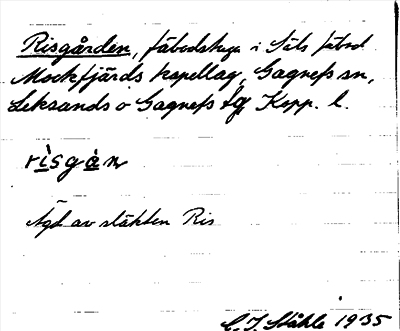 Risgården, fäbodstuga i Säls fäbod
Mockfjärds kapellag, Gagnefs sn,
Leksands o Gagnefs tg Kopp. l.
rìsgàn
Ägd av släkten Ris
C. I. Ståhle 1935